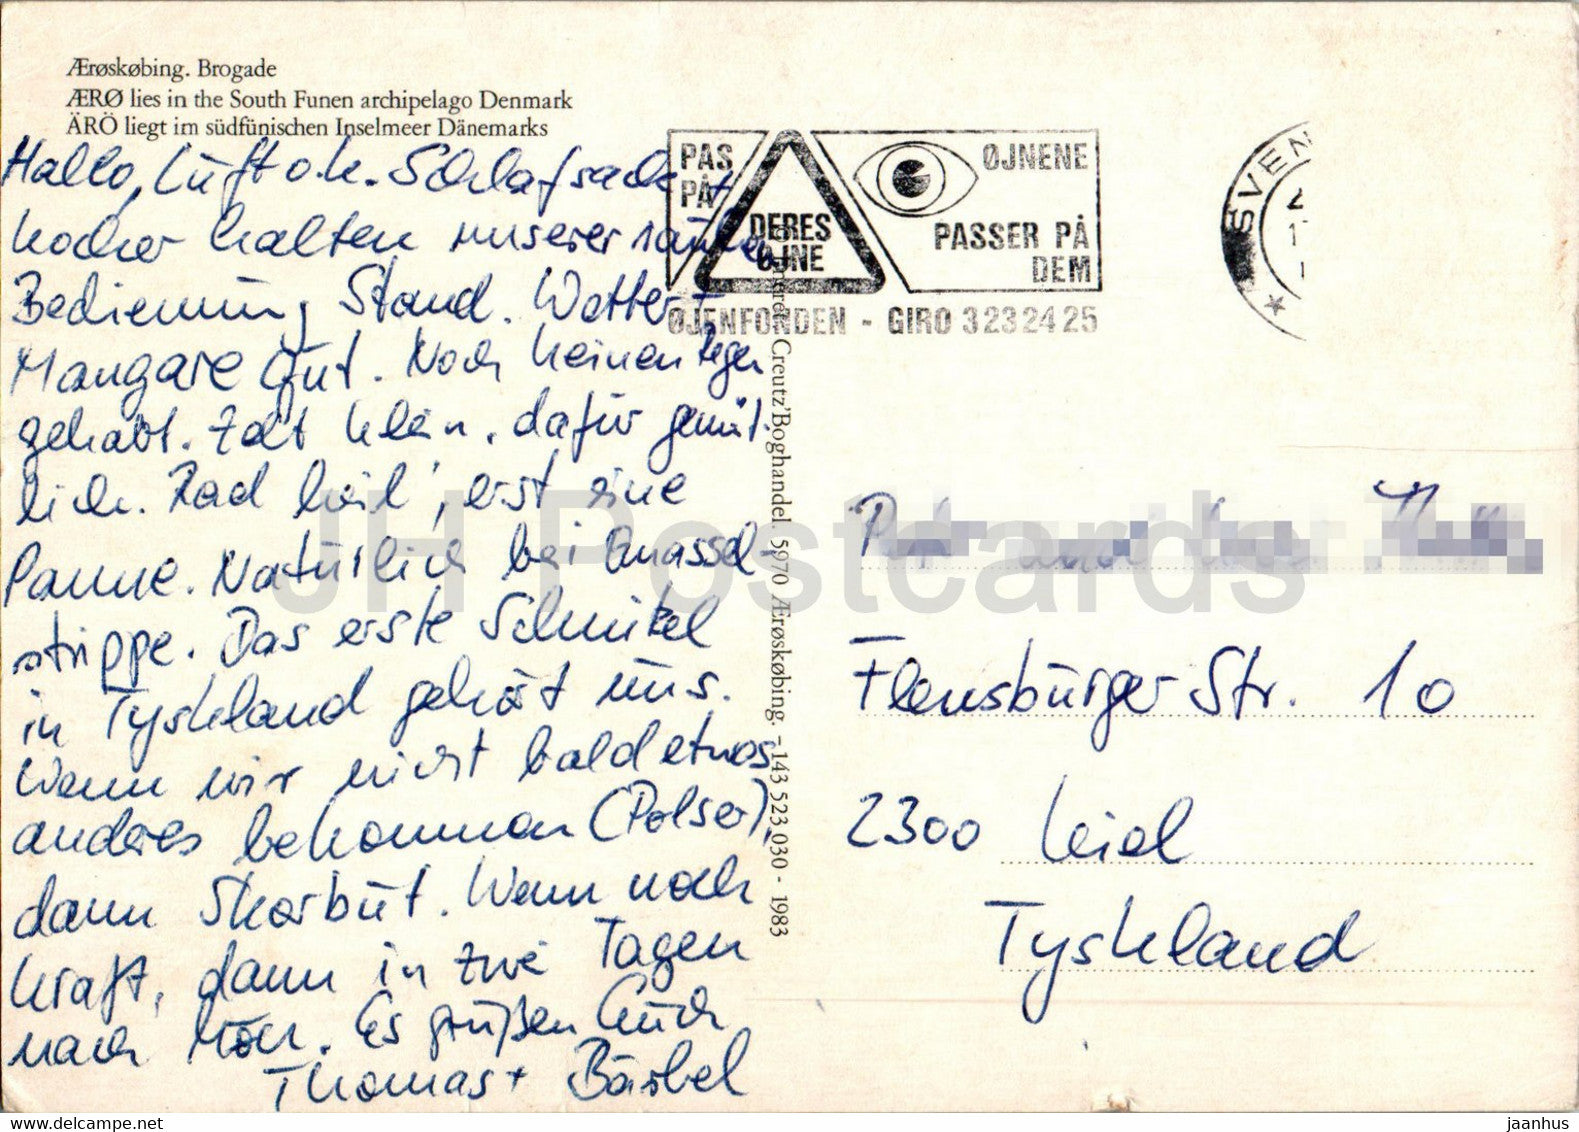 Ærøskøbing. Brogade
ÆRØ lies in the South Funen archipelago Denmark
ÄRÖ liegt im südfünischen Inselmeer Dänemarks
Hallo, Luft o.k. Schlafsack +
Kocher halten unserer rauhen
Bedienung Stand. Wetter +
Mangare gut. Noch keinen Regen
gehabt. Zelt klein, dafür gemüt-
lich. Rad heil, erst eine
Panne. Natürlich bei Quassel-
strippe. Das erste Schnitzel
in Tyskland gehört uns.
Wenn wir nicht bald etwas
anderes bekommen (Polser),
dann Skorbut. Wenn noch
Kraft, dann in zwei Tagen
nach Mön. Es grüßen Euch
Thomas + Bärbel
PAS PÅ DERES ØJNE
ØJNENE PASSER PÅ DEM
ØJENFONDEN - GIRO 3232425
SVEN
Creutz' Boghandel. 5970 Ærøskøbing. - 143 523 030 - 1983
Flensburger Str. 10
2300 Kiel
Tyskland
JH Postcards
www.delcampe.net
jaanhus